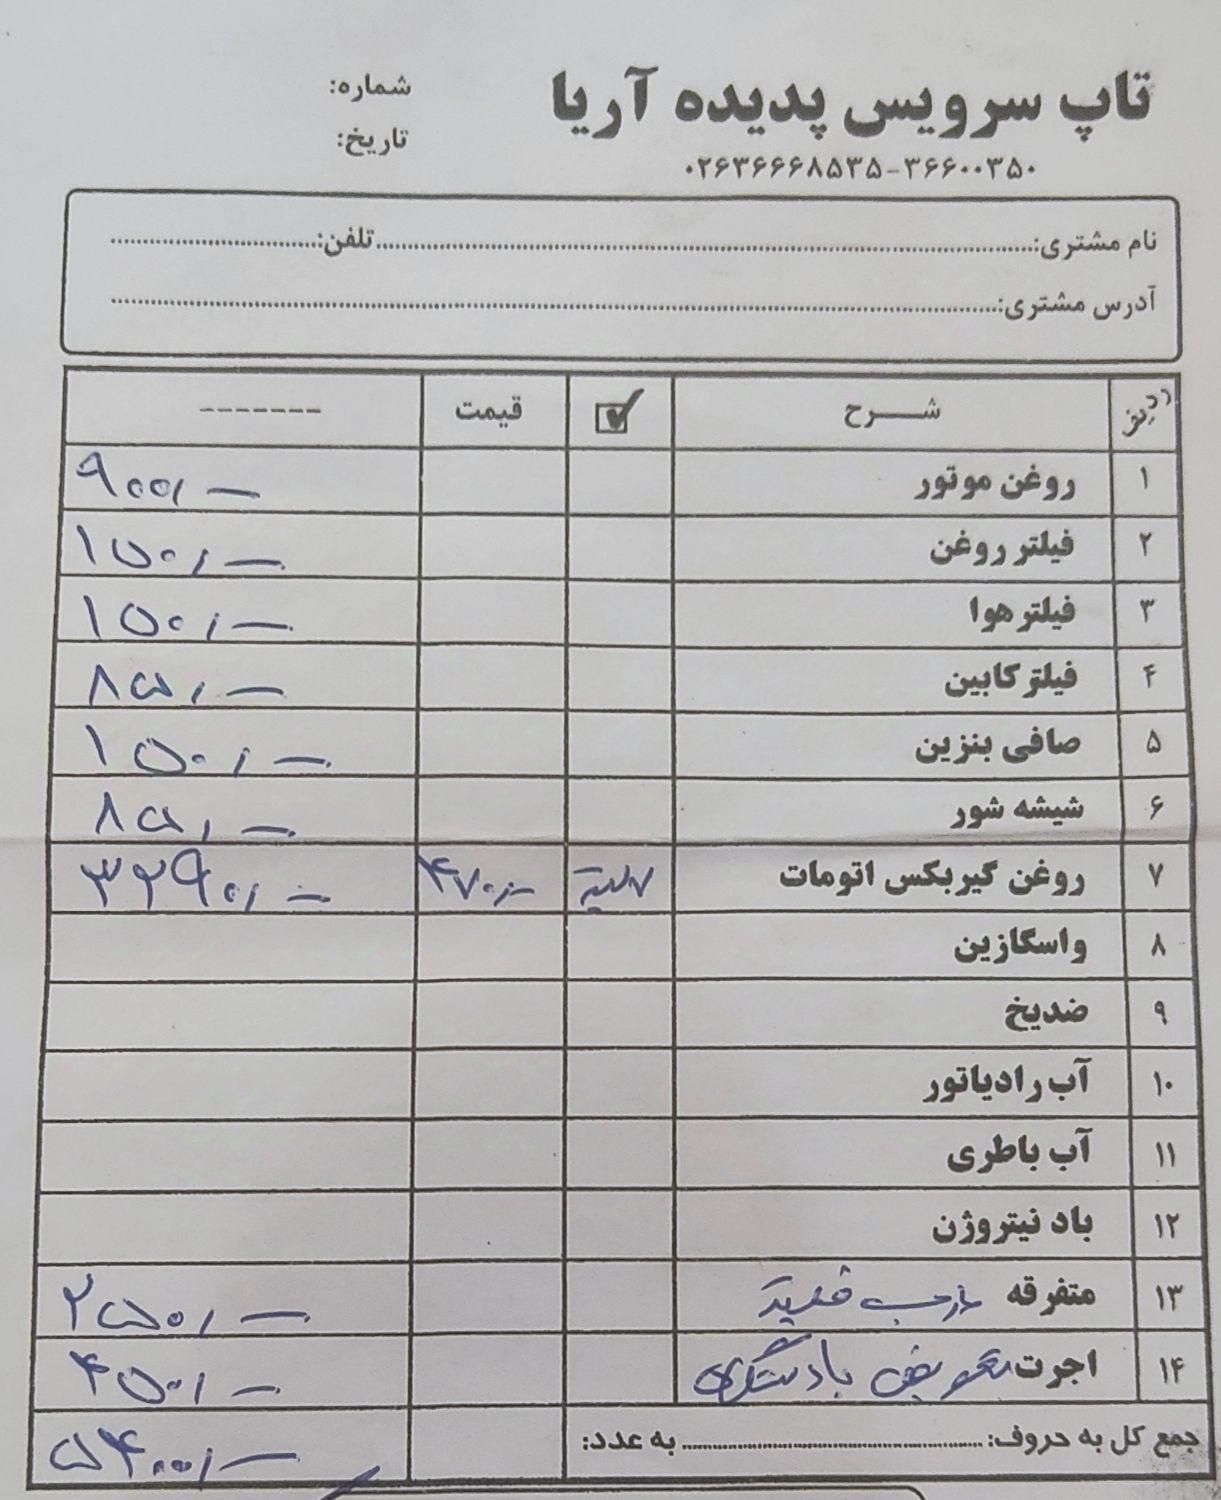 تاپ سرویس پدیده آریا
شماره:
تاریخ:
۰۲۶۳۶۶۶۸۵۳۵-۳۶۶۰۰۳۵۰
نام مشتری: تلفن:
آدرس مشتری:
ردیف شرح ☑ قیمت -------
۱ روغن موتور ۹۰۰٫-
۲ فیلتر روغن ۱۵۰٫-
۳ فیلتر هوا ۱۵۰٫-
۴ فیلتر کابین ۸۵٫-
۵ صافی بنزین ۱۵۰٫-
۶ شیشه شور ۸۵٫-
۷ روغن گیربکس اتومات ۷ لیتر ۴۷۰٫- ۳۲۹۰٫-
۸ واسگازین
۹ ضدیخ
۱۰ آب رادیاتور
۱۱ آب باطری
۱۲ باد نیتروژن
۱۳ متفرقه ۲۵۰٫-
۱۴ اجرت تعویض با دستگاه ۴۵۰٫-
جمع کل به حروف: به عدد: ۵۴۰۰٫-